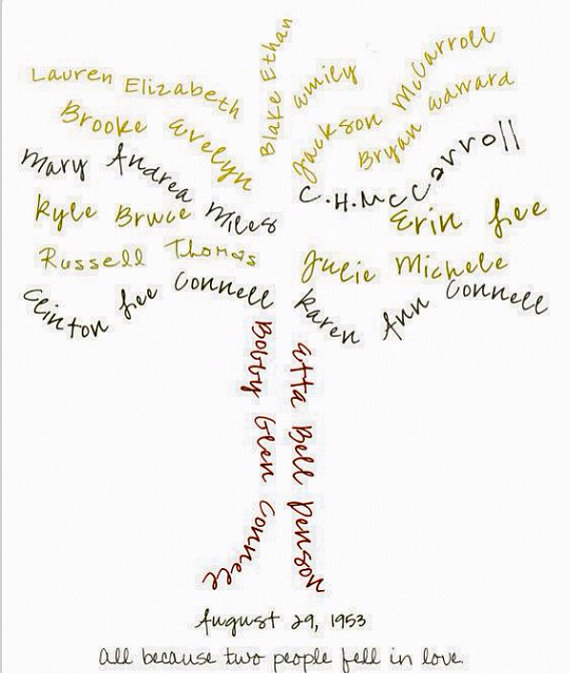 Blake Ethan
Lauren Elizabeth
Emily
Jackson McCarroll
Brooke Evelyn
Bryan Edward
Mary Andrea Miles
C.H. McCarroll
Kyle Bruce
Erin Lee
Russell Thomas
Julie Michele
Clinton Lee Connell
Karen Ann Connell
Bobby Glen Connell
Etta Bell Denson
August 29, 1953
all because two people fell in love.